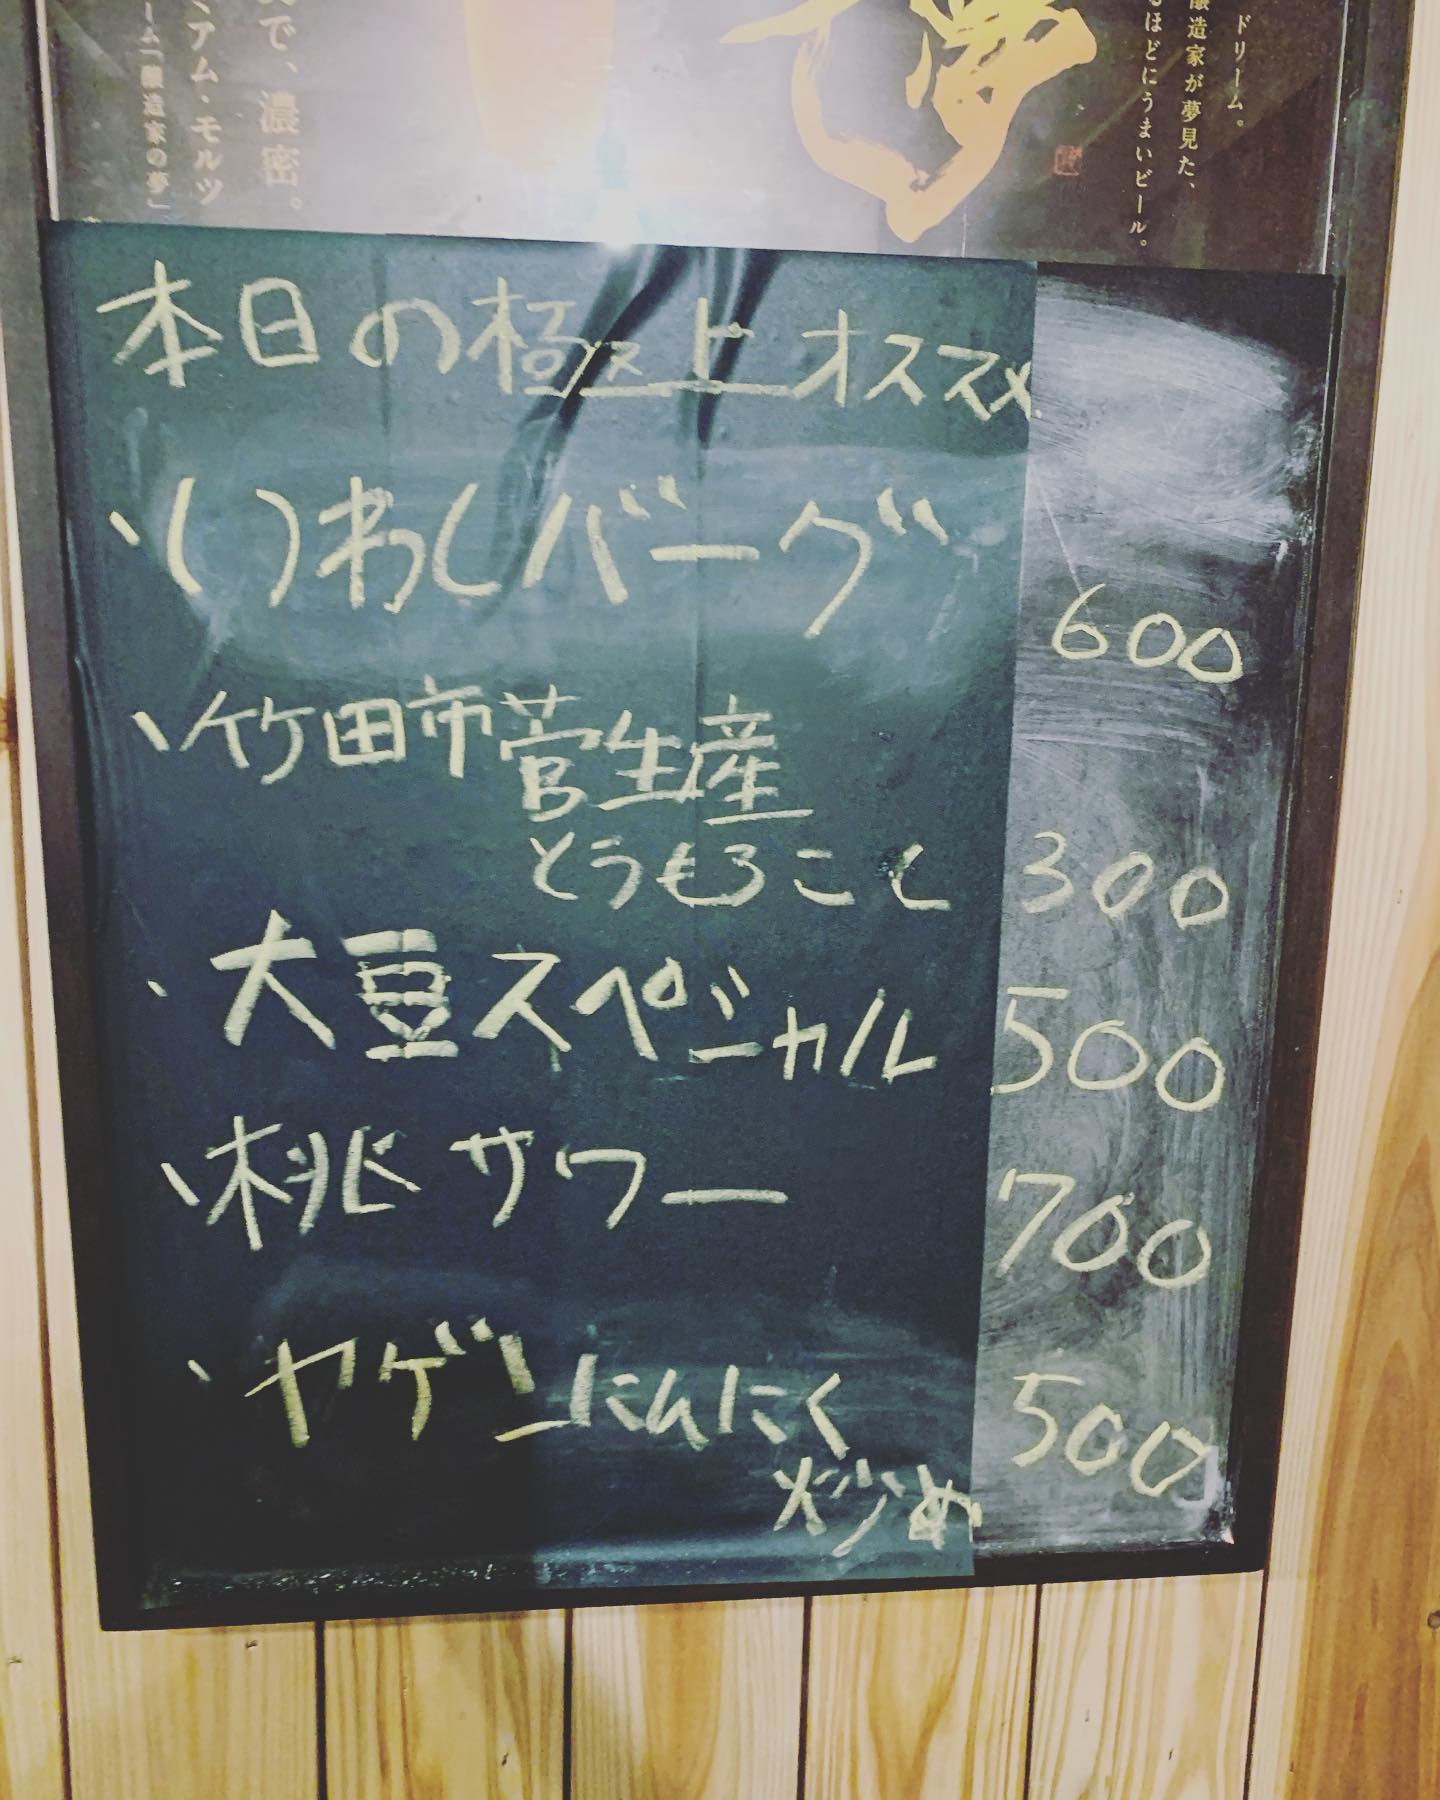 ドリーム。
醸造家が夢見た、
るほどにうまいビール。
夢
で、濃密。
ミアム・モルツ
ーム「醸造家の夢」
本日の極上オススメ
、いわしバーグ 600
、竹田市菅生産
とうもろこし 300
、大豆スペシャル 500
、桃サワー 700
、ヤゲンにんにく
炒め 500